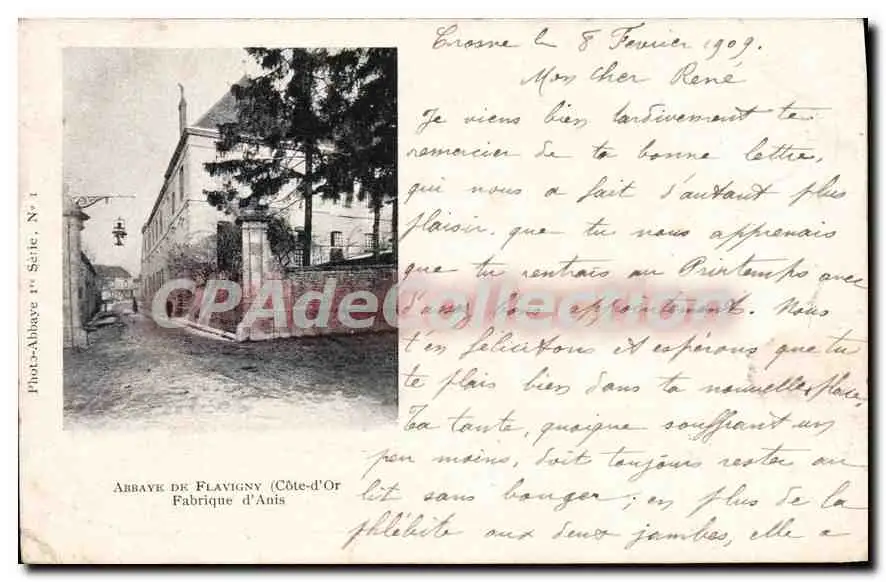 Photo-Abbaye 1re Série. No 1
ABBAYE DE FLAVIGNY (Côte-d'Or
Fabrique d'Anis
Crosne le 8 Fevrier 1909.
Mon cher René
Je viens bien tardivement te
remercier de ta bonne lettre,
qui nous a fait d'autant plus
plaisir, que tu nous apprenais
que tu rentrais au Printemps avec
d'assez bons appointement. Nous
t'en felicitons et espérons que tu
te plais bien dans ta nouvelle place.
Ta tante, quoique souffrant un
peu moins, doit toujours rester au
lit sans bouger; en plus de la
phlébite aux deux jambes, elle a
CPArama Collection